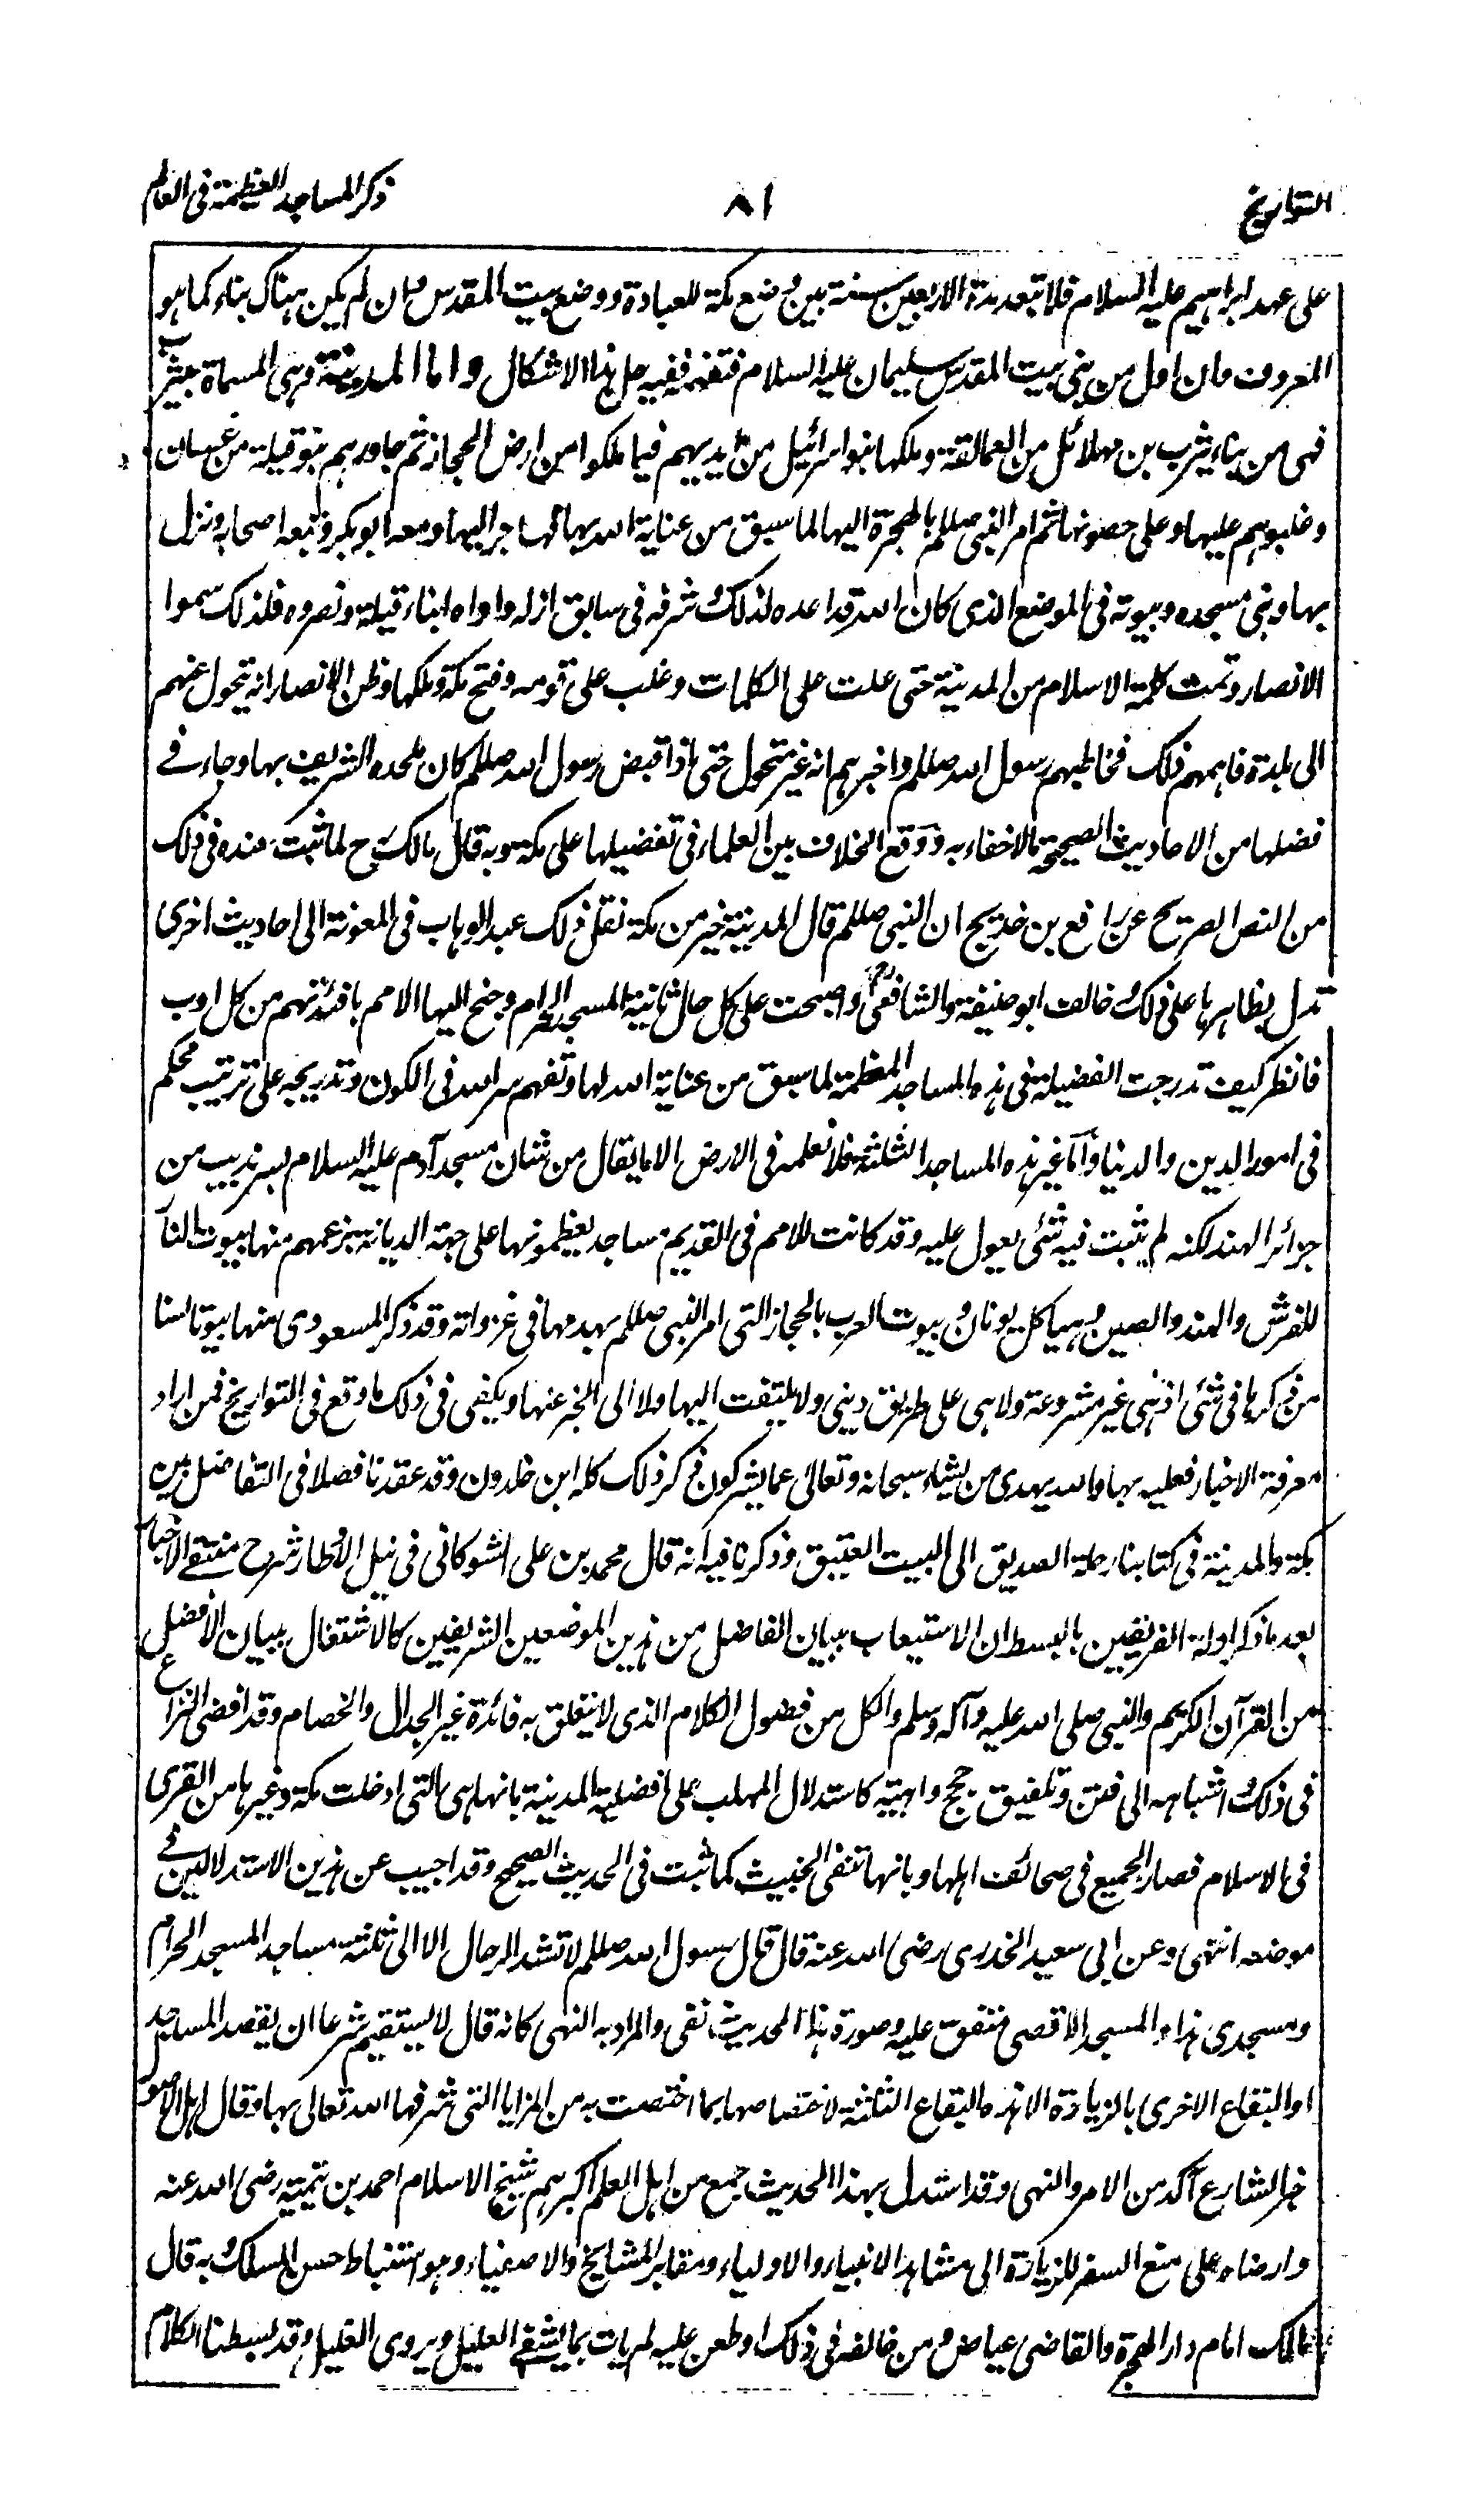 التواريخ
٨١
ذكر المساجد العظيمة فى العالم
على عهد ابراهيم عليه السلام فلا تبعد مدة الاربعين سنة بين وضع مكة للعبادة ووضع بيت المقدس وان لم يكن هناك بناء كما هو
المعروف وان اول من بنى بيت المقدس سليمان عليه السلام فتفهمه ففيه حل هذا الاشكال واما المدينة وهى المسماة بيثرب
فهى من بناء يثرب بن مهلائل من العمالقة وملكها بنو اسرائيل من ايديهم فيما ملكوا من ارض الحجاز ثم جاورهم بنو قيلة من غسان
وغلبوهم عليها وعلى حصونها ثم امر النبى صللم بالهجرة اليها لما سبق من عناية الله بها فهاجر اليها ومعه ابو بكر وتبعه اصحابه ونزل
بها وبنى مسجده وبيوته فى الموضع الذى كان الله قد اعده لذلك وشرفه فى سابق ازله واواه ابناء قيلة ونصروه فلذلك سموا
الانصار وتمت كلمة الاسلام من المدينة حتى علت على الكلمات وغلب على قومه وفتح مكة وملكها وظن الانصار انه يتحول عنهم
الى بلده فاهمهم ذلك فخاطبهم رسول الله صللم واخبرهم انه غير متحول حتى اذا قبض رسول الله صللم كان ملحده الشريف بها وجاء فے
فضلها من الاحاديث الصحيحة مالا خفاء به ووقع الخلاف بين العلماء فى تفضيلها على مكة وبه قال مالك رح لما ثبت عنده فى ذلك
من النص الصريح عن رافع بن خديج ان النبى صللم قال المدينة خير من مكة نقل ذلك عبد الوهاب فى المعونة الى احاديث اخرى
تدل بظاهرها على ذلك وخالف ابو حنيفة والشافعى رح واصبحت على كل حال ثانية المسجد الحرام وجنح اليها الامم بافئدتهم من كل اوب
فانظر كيف تدرجت الفضيلة فى هذه المساجد المعظمة لما سبق من عناية الله لها وتفهم سر الله فى الكون وتدريجه على ترتيب محكم
فى امور الدين والدنيا واما غير هذه المساجد الثلثة فلا نعلمه فى الارض الا ما يقال من شان مسجد آدم عليه السلام بسرنديب من
جزائر الهند لكنه لم يثبت فيه شئى يعول عليه وقد كانت للامم فى القديم مساجد يعظمونها على جهة الديانة بزعمهم منها بيوت النا
للفرس والهند والصين وهياكل يونان وبيوت العرب بالحجاز التى امر النبى صللم بهدمها فى غزواته وقد ذكر المسعودى منها بيوتا لسنا
من ذكرها فى شئى اذ هى غير مشروعة ولا هى على طريق دينى ولا يلتفت اليها ولا الى الخبر عنها ويكفى فى ذلك ما وقع فى التواريخ فمن اراد
معرفة الاخبار فعليه بها والله يهدى من يشاء سبحانه وتعالى عما يشركون ذكر ذلك كله ابن خلدون وقد عقدنا فصلا فى التفاضل بين
مكة والمدينة فى كتابنا رحلة الصديق الى البيت العتيق وذكرنا فيه انه قال محمد بن على الشوكانى فى نيل الاوطار شرح منتقے الاخبار
بعد ما ذكر ادلة الفريقين بالبسط ان الاستيعاب ببيان الفاضل من هذين الموضعين الشريفين كالاشتغال ببيان الافضل
من القرآن الكريم والنبى صلى الله عليه وآله وسلم والكل من فضول الكلام الذى لا يتعلق به فائدة غير الجدال والخصام وقد افضى النزاع
فى ذلك اشباهه الى فتن وتلفيق حجج واهية كاستدلال المهلب على افضلية المدينة بانها هى التى ادخلت مكة وغيرها من القرى
فى الاسلام فصار الجميع فى صحائف اهلها وبانها تنفى الخبيث كما ثبت فى الحديث الصحيح وقد اجيب عن هذين الاستدلالين فے
موضعه انتهى وعن ابى سعيد الخدرى رضى الله عنه قال قال رسول الله صللم لا تشد الرحال الا الى ثلثة مساجد المسجد الحرام
ومسجدى هذا والمسجد الاقصى متفق عليه وصورة هذا الحديث نفى والمراد به النهى كانه قال لا يستقيم شرعا ان يقصد المساجد
او البقاع الاخرى بالزيارة الا هذه البقاع الثلثة لاختصاصها بما اختصت به من المزايا التى شرفها الله تعالى بها وقال اهل الاصول
خبر الشارع آكد من الامر والنهى وقد استدل بهذا الحديث جمع من اهل العلم اكبرهم شيخ الاسلام احمد بن تيمية رضى الله عنه
وارضاه على منع السفر للزيارة الى مشاهد الانبياء والاولياء ومقابر المشايخ والاصفياء وهو استنباط حسن المسلك وبه قال
مالك امام دار الهجرة والقاضى عياض ومن خالفه فى ذلك او طعن عليه لم يات بما يشفے العليل ويروى الغليل وقد بسطنا الكلام